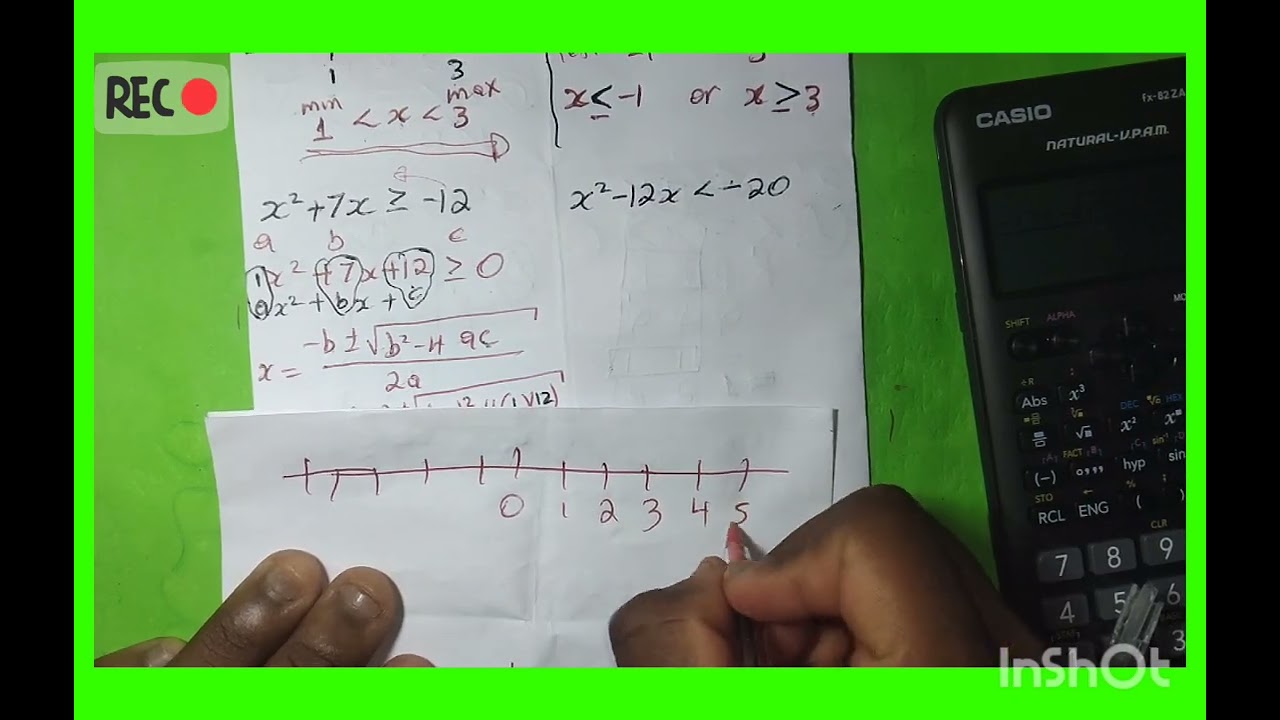 REC
1 3
min max
1 < x < 3
x ≤ -1 or x ≥ 3
x² + 7x ≥ -12
a b c
1x² + 7x + 12 ≥ 0
ax² + bx + c
x = -b ± √b² - 4ac
2a
x² - 12x < -20
0 1 2 3 4 5
CASIO
fx-82ZA
NATURAL-V.P.A.M.
SHIFT ALPHA
Abs x³
DEC HEX
√ x²
FACT
(-) hyp sin
STO
RCL ENG (
CLR
7 8 9
4 5 6
3
InShOt